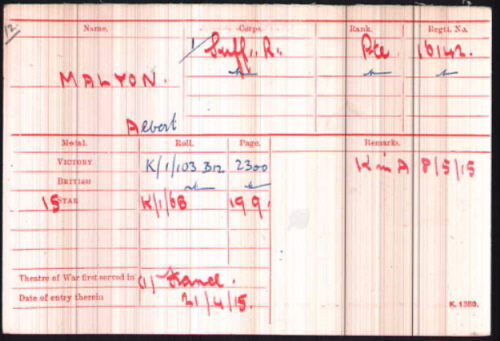 12
Name. Corps. Rank. Regtl. No.
1/ Suff. R. Pte 16142.
MALYON.
Albert
Medal. Roll. Page. Remarks.
VICTORY K/1/103 B12 2300 K in A 8/5/15
BRITISH
15 STAR K/1/6B 199.
Theatre of War first served in (1) France.
Date of entry therein 21/4/15.
K. 1380.